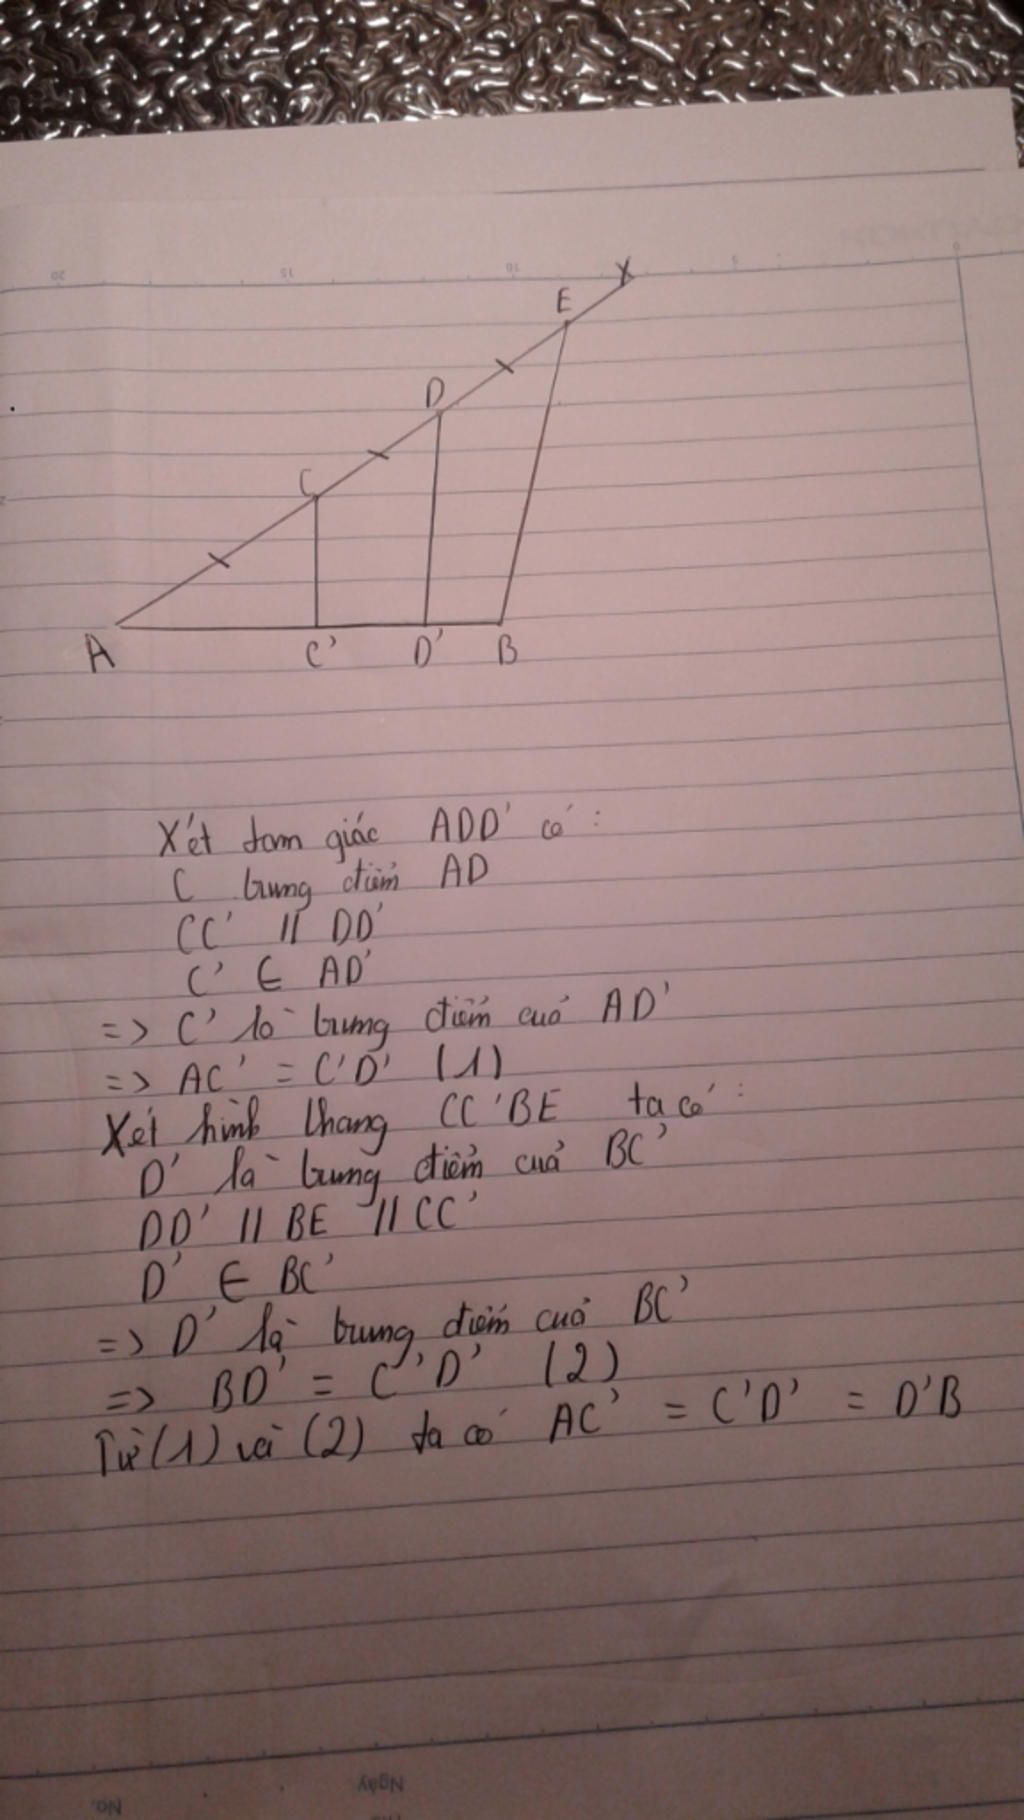 20 15 10 5 0
X
E
D
C
A C' D' B
Xét tam giác ADD' có :
C trung điểm AD
CC' // DD'
C' ∈ AD'
=> C' là trung điểm cuả AD'
=> AC' = C'D' (1)
Xét hình thang CC'BE ta có :
D' là trung điểm cuả BC'
DD' // BE // CC'
D' ∈ BC'
=> D' là trung điểm cuả BC'
=> BD' = C'D' (2)
Từ (1) và (2) ta có AC' = C'D' = D'B
Ngày
No.